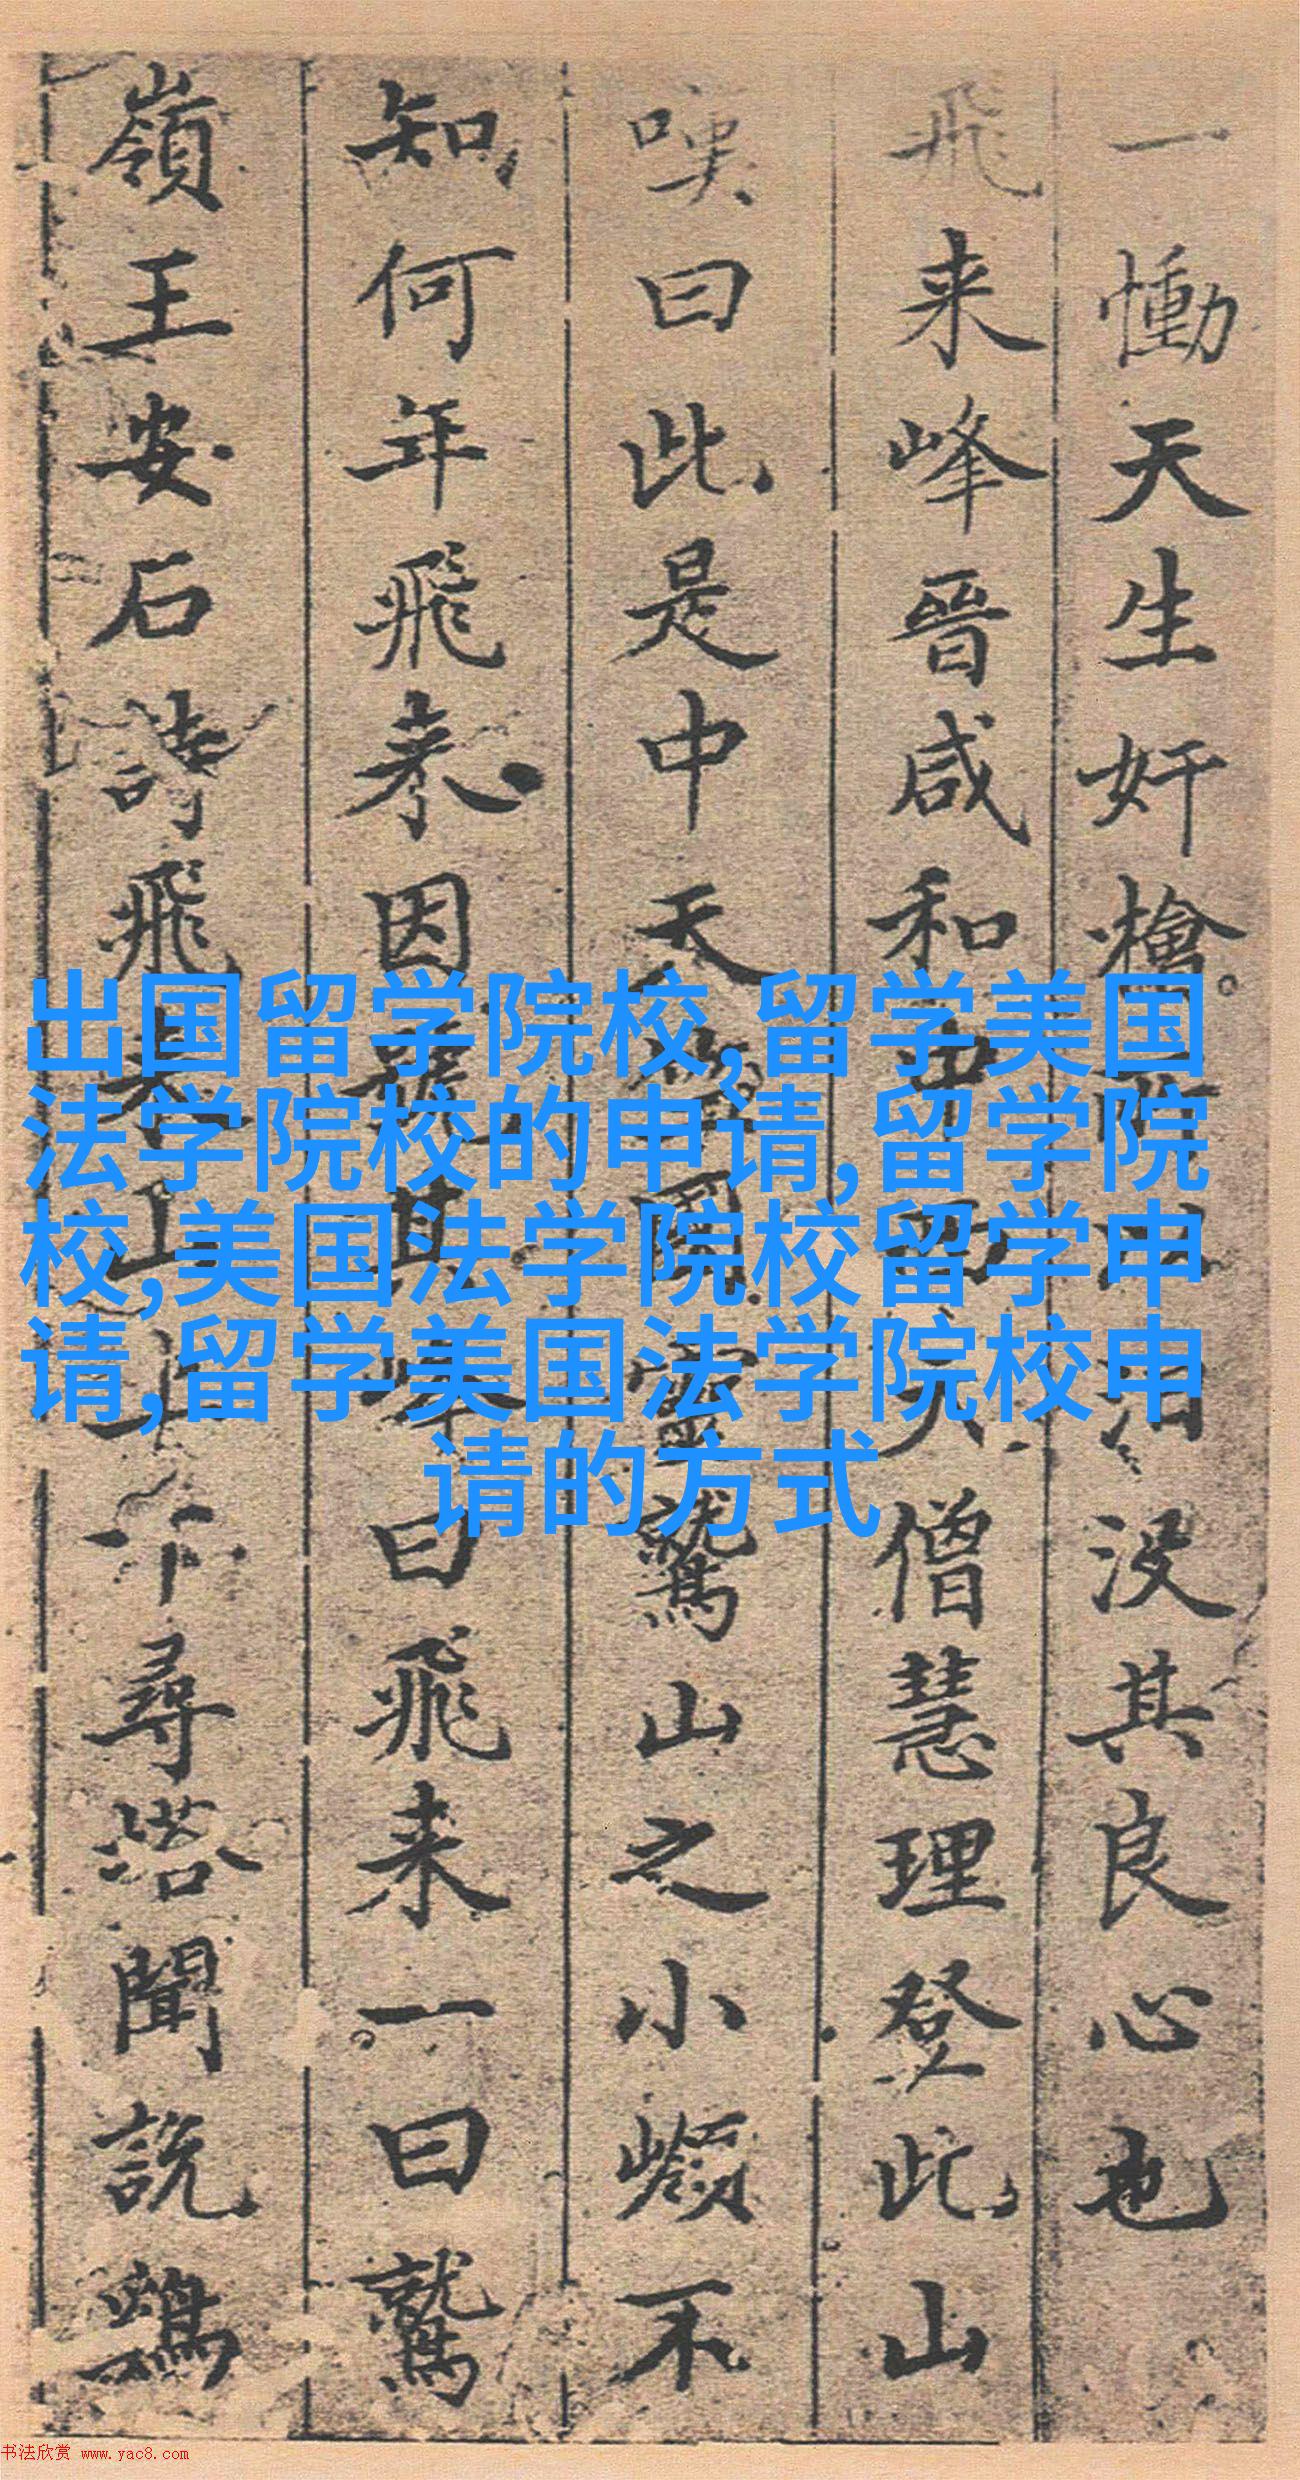 一慟天生奸檜汩没其良心也
飛来峰晉咸和中西天僧慧理登此山
嘆曰此是中天竺國靈鷲山之小嶺不
知何年飛来因號其峯曰飛来一曰鷲
嶺王安石詩飛来山上千尋塔聞説鷄
出国留学院校,留学美国
法学院校的申请,留学院
校,美国法学院校留学申
请,留学美国法学院校申
请的方式
书法欣赏 www.yac8.com